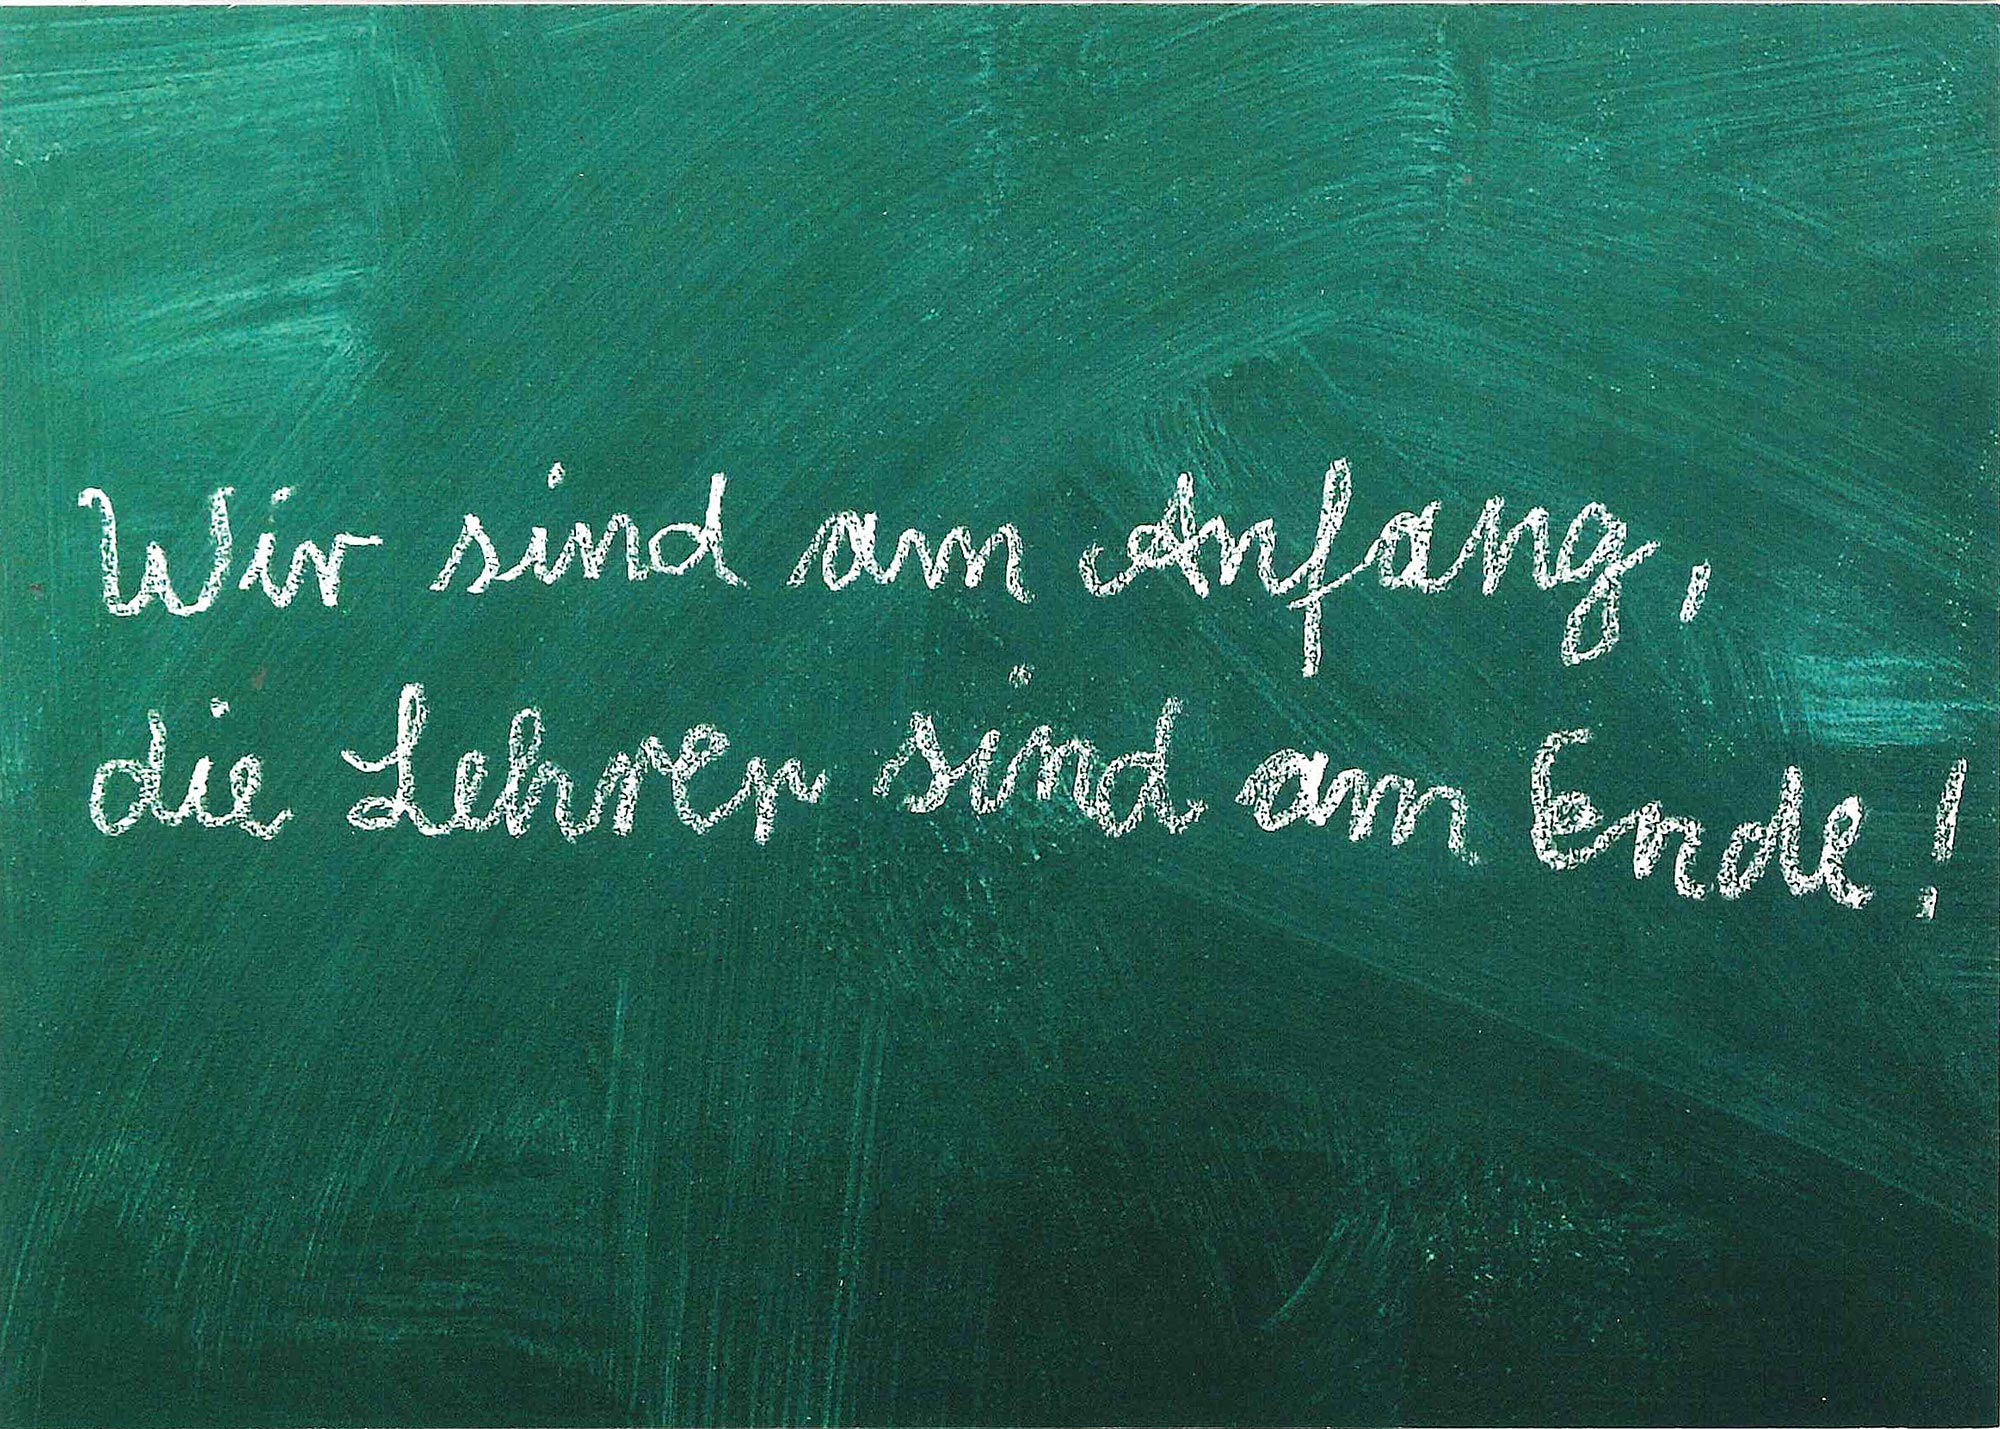 Wir sind am Anfang,
die Lehrer sind am Ende!